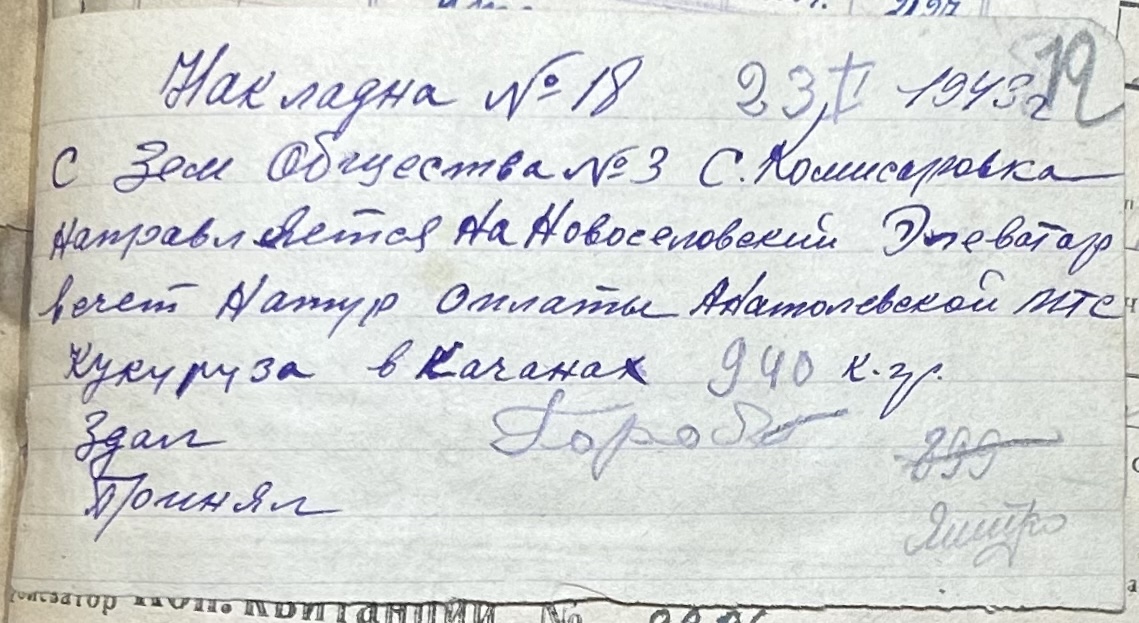 Накладна № 18 23/I 1943 г
12
С Зем Общества № 3 С. Комисаровка
Направляется На Новоселовский Элеватор
в счет Натур оплаты Анатолевской МТС
Кукуруза в Качанах 940 к.гр.
Здал
899
Принял